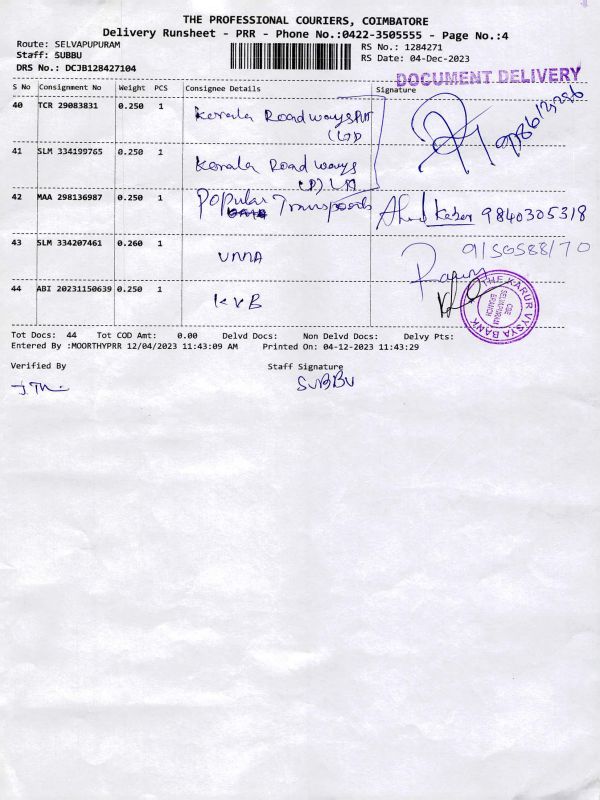 THE PROFESSIONAL COURIERS, COIMBATORE
Delivery Runsheet - PRR - Phone No.:0422-3505555 - Page No.:4
Route: SELVAPUPURAM
Staff: SUBBU
DRS No.: DCJB128427104
RS No.: 1284271
RS Date: 04-Dec-2023
DOCUMENT DELIVERY
S No Consignment No Weight PCS Consignee Details Signature
40 TCR 29083831 0.250 1 Kerala Roadways Pvt
Ltd
41 SLM 334199765 0.250 1 Kerala Roadways
(P) Ltd
42 MAA 298136987 0.250 1 Popular Transports 9840305318
43 SLM 334207461 0.260 1 UMA
44 ABI 20231150639 0.250 1 KVB
THE KARUR VYSYA BANK
CBE
SELVAPURAM
BRANCH
Tot Docs: 44 Tot COD Amt: 0.00 Delvd Docs: Non Delvd Docs: Delvy Pts:
Entered By :MOORTHYPRR 12/04/2023 11:43:09 AM Printed On: 04-12-2023 11:43:29
Verified By Staff Signature
SUBBU